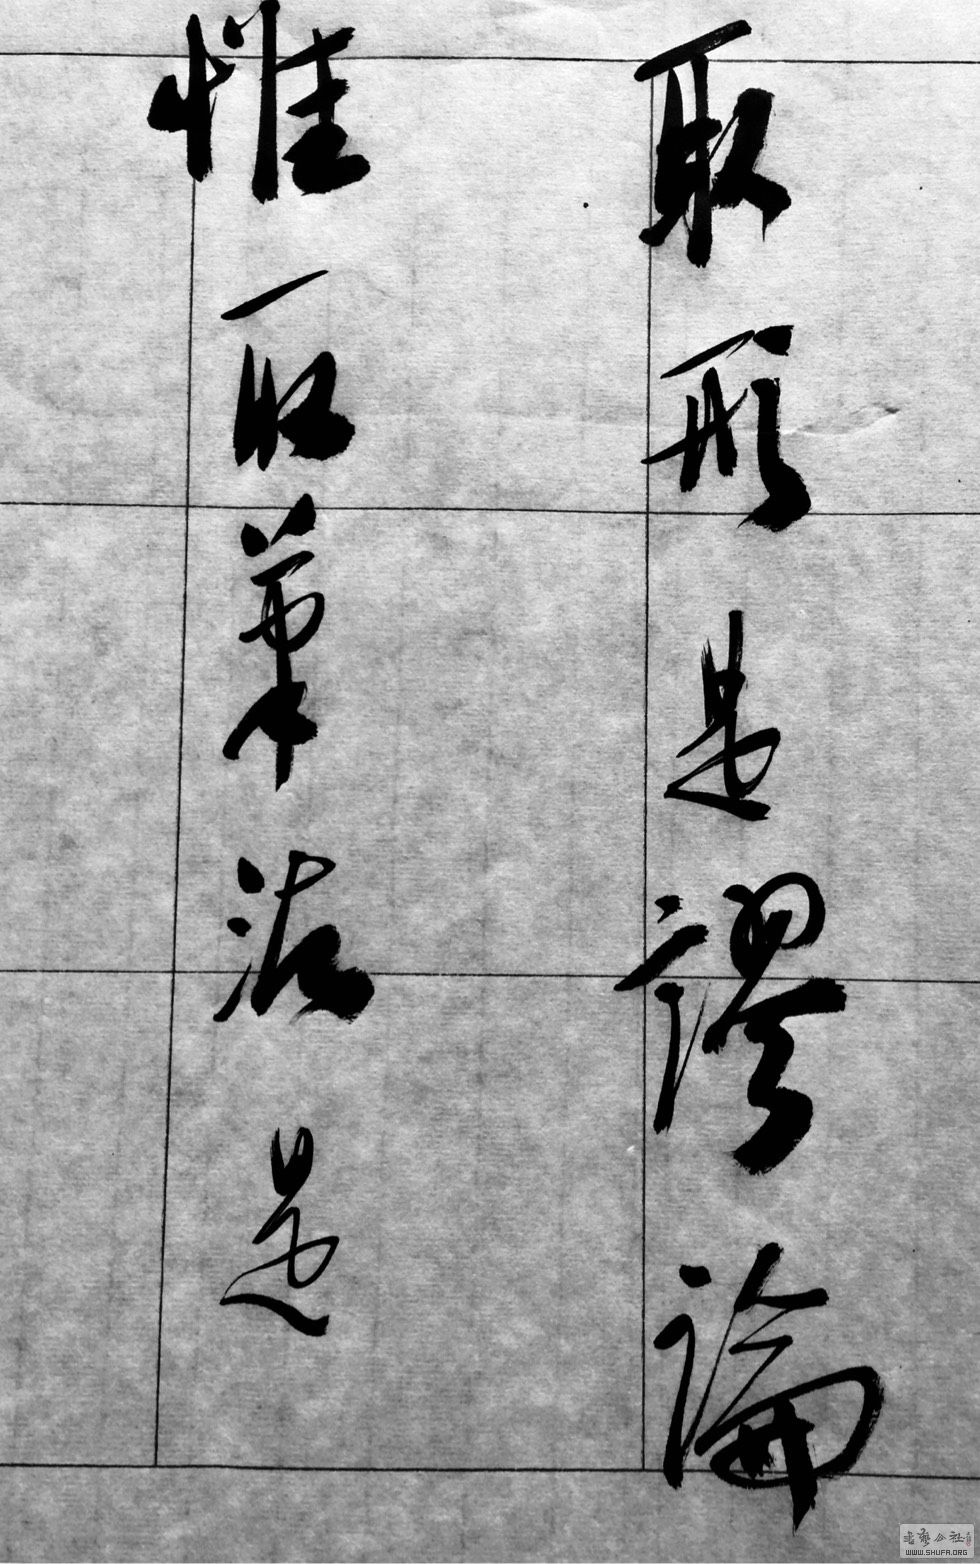 取形是謬論
惟取筆法是
書藝公社
WWW.SHUFA.ORG